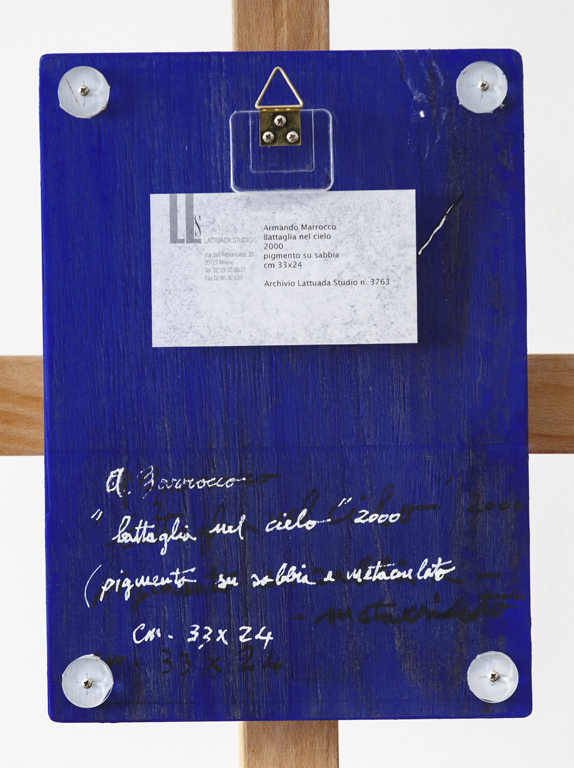 LLs
LATTUADA STUDIO
Via dell'Annunciata, 31
20121 Milano
Tel. 02 29 00 00 71
Armando Marrocco
Battaglia nel cielo
2000
pigmento su sabbia
cm 33x24
Archivio Lattuada Studio n. 3763
A. Marrocco
"battaglia nel cielo" 2000
(pigmento su sabbia e metacrilato
cm. 33x24
2000
metacrilato
33 x 24